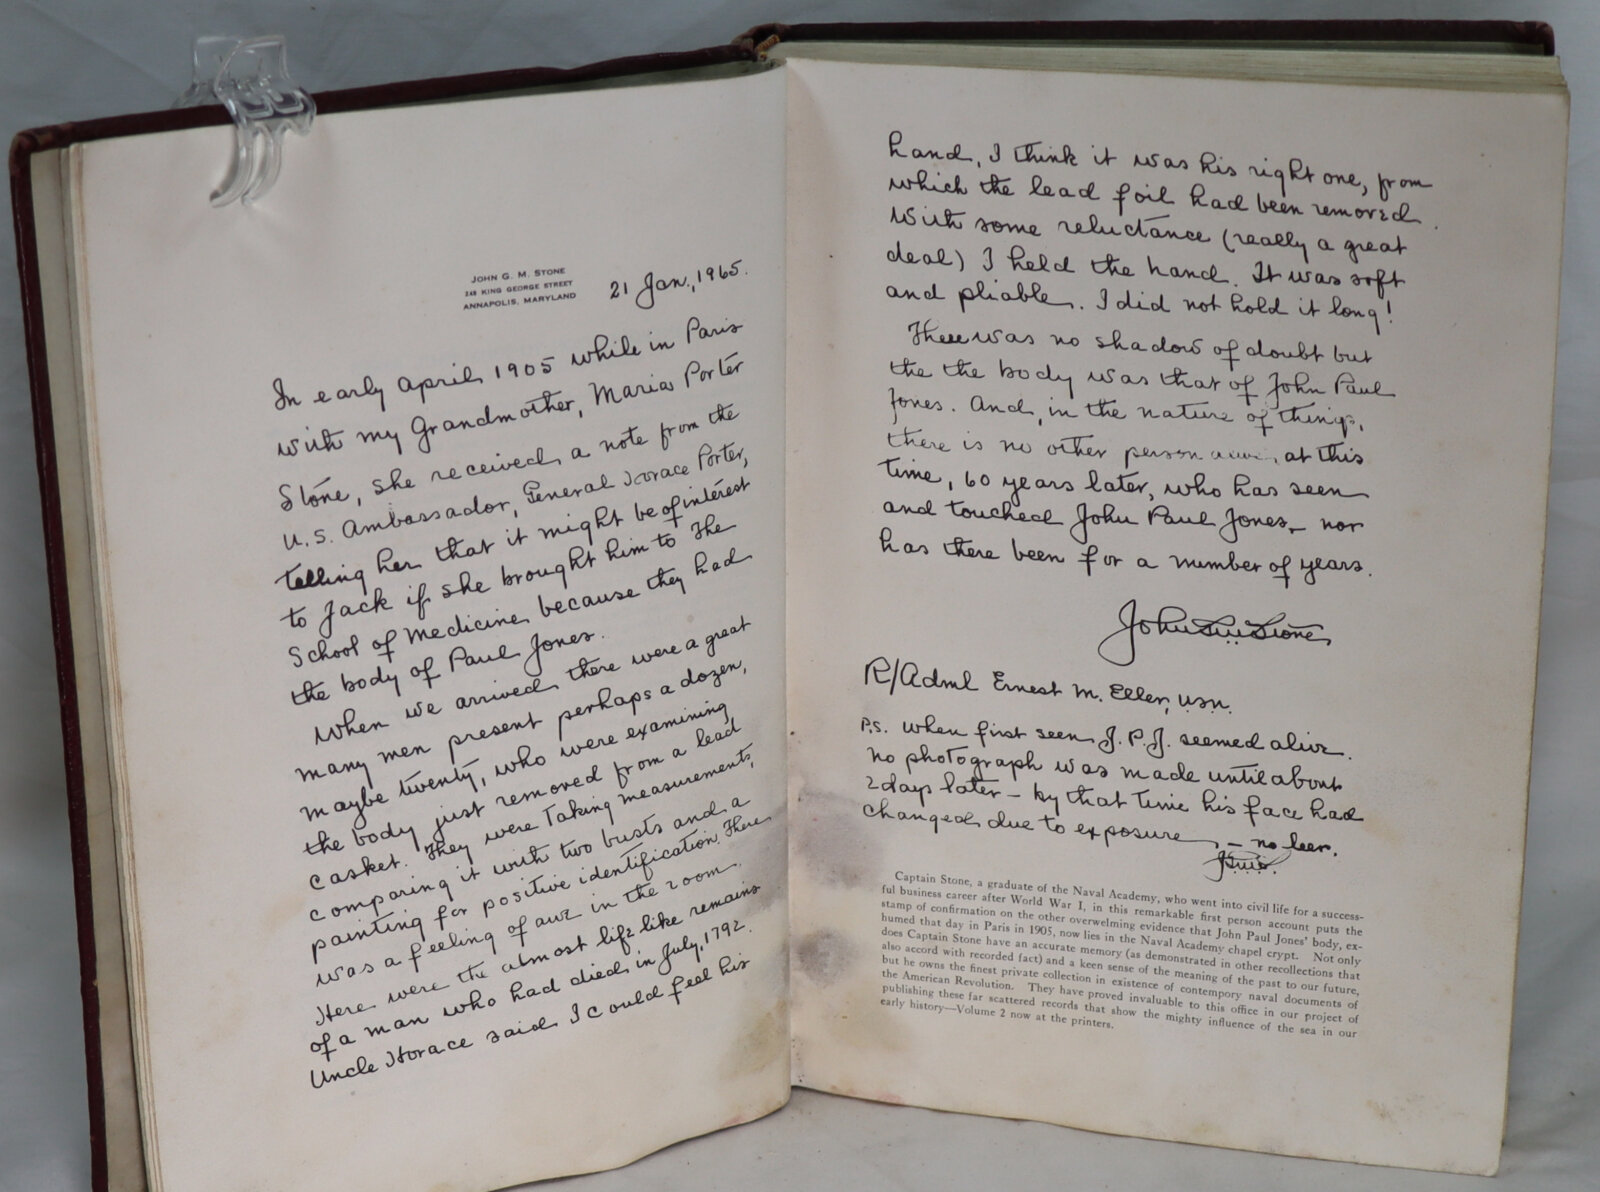 JOHN G. M. STONE
248 KING GEORGE STREET
ANNAPOLIS, MARYLAND
21 Jan., 1965.
In early April 1905 while in Paris
with my Grandmother, Maria Porter
Stone, she received a note from the
U.S. Ambassador, General Horace Porter,
telling her that it might be of interest
to Jack if she brought him to The
School of Medicine because they had
the body of Paul Jones.
When we arrived there were a great
many men present perhaps a dozen,
maybe twenty, who were examining
the body just removed from a lead
casket. They were taking measurements,
comparing it with two busts and a
painting for positive identification. There
was a feeling of awe in the room.
Here were the almost life like remains
of a man who had died in July, 1792.
Uncle Horace said I could feel his
hand, I think it was his right one, from
which the lead foil had been removed.
With some reluctance (really a great
deal) I held the hand. It was soft
and pliable. I did not hold it long!
There was no shadow of doubt but
the the body was that of John Paul
Jones. And, in the nature of things,
there is no other person alive, at this
time, 60 years later, who has seen
and touched John Paul Jones, nor
has there been for a number of years.
John Stone
R/Adml Ernest M. Eller, U.S.N.
P.S. When first seen J.P.J. seemed alive.
No photograph was made until about
2 days later – by that time his face had
changed due to exposure – no leer.
Captain Stone, a graduate of the Naval Academy, who went into civil life for a success-
ful business career after World War I, in this remarkable first person account puts the
stamp of confirmation on the other overwelming evidence that John Paul Jones' body, ex-
humed that day in Paris in 1905, now lies in the Naval Academy chapel crypt. Not only
does Captain Stone have an accurate memory (as demonstrated in other recollections that
also accord with recorded fact) and a keen sense of the meaning of the past to our future,
but he owns the finest private collection in existence of contempory naval documents of
the American Revolution. They have proved invaluable to this office in our project of
publishing these far scattered records that show the mighty influence of the sea in our
early history—Volume 2 now at the printers.